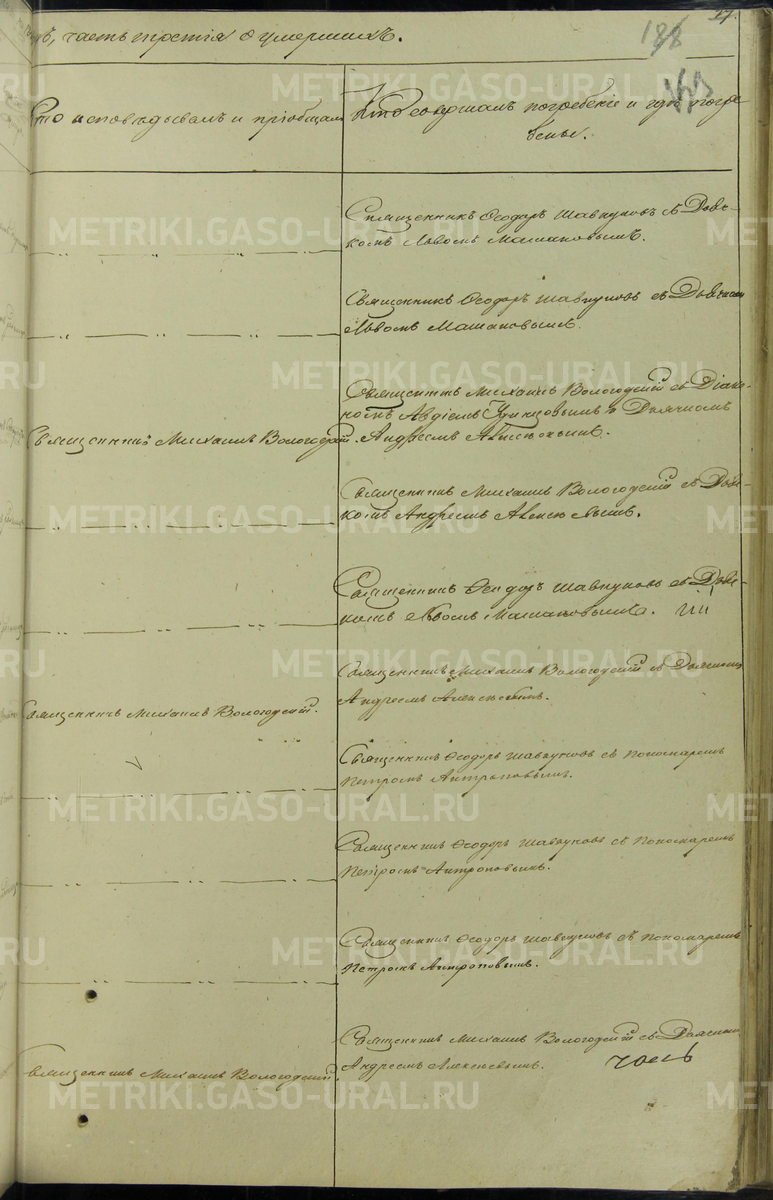 часть третія о умершихъ.
188
Кто исповѣдывалъ и пріобщалъ
Кто совершалъ погребеніе и гдѣ погре
бены.
Священникъ Ѳеодоръ Шавкуновъ съ Дьяч-
комъ Львомъ Машановымъ.
Священникъ Ѳеодоръ Шавкуновъ съ Дьячкомъ
Львомъ Машановымъ.
Священникъ Михаилъ Вологодскій.
Священникъ Михаилъ Вологодскій съ Діако-
номъ Авдіемъ и Дьячкомъ
Андреемъ Алексѣевымъ.
Священникъ Михаилъ Вологодскій съ Дьяч-
комъ Андреемъ Алексѣевымъ.
Священникъ Ѳеодоръ Шавкуновъ съ Дьяч-
комъ Львомъ Машановымъ.
Священникъ Михаилъ Вологодскій.
Священникъ Михаилъ Вологодскій съ Дьячкомъ
Андреемъ Алексѣевымъ.
Священникъ Ѳеодоръ Шавкуновъ съ Пономаремъ
Петромъ Антроповымъ.
Священникъ Ѳеодоръ Шавкуновъ съ Пономаремъ
Петромъ Антроповымъ.
Священникъ Ѳеодоръ Шавкуновъ съ Пономаремъ
Петромъ Антроповымъ.
Священникъ Михаилъ Вологодскій.
Священникъ Михаилъ Вологодскій съ Дьячкомъ
Андреемъ Алексѣевымъ.
METRIKI.GASO-URAL.RU